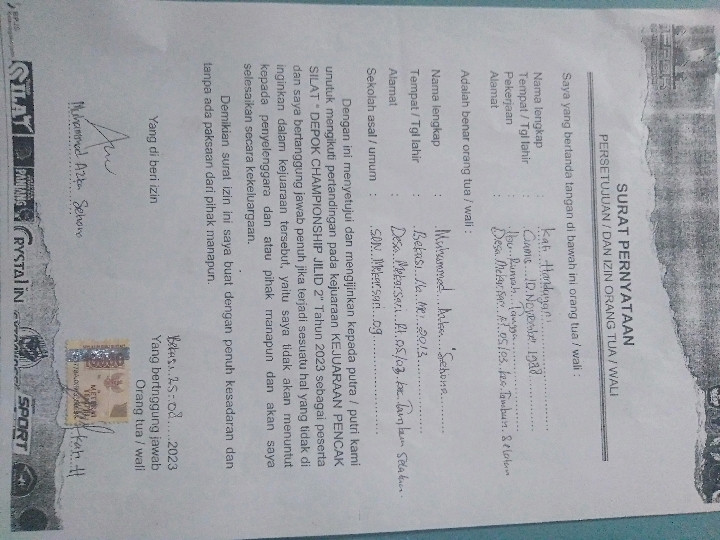 SURAT PERNYATAAN
PERSETUJUAN / DAN IZIN ORANG TUA / WALI
Saya yang bertanda tangan di bawah ini orang tua / wali :
Nama lengkap : Kah. Handayani
Tempat / Tgl lahir : Ciamis, 10 Nopember 1988
Pekerjaan : Ibu Rumah Tangga
Alamat : Desa Mekarsari Rt.05/03. Kec Tambun Selatan
Adalah benar orang tua / wali :
Nama lengkap : Muhammad Azka Sehona
Tempat / Tgl lahir : Bekasi, 2013
Alamat : Desa Mekarsari Rt.05/03 kec Tambun Selatan
Sekolah asal / umum : SDN. Mekarsari 09
Dengan ini menyetujui dan mengijinkan kepada putra / putri kami
unutuk mengikuti pertandingan pada kejuaraan KEJUARAAN PENCAK
SILAT " DEPOK CHAMPIONSHIP JILID 2" Tahun 2023 sebagai peserta
dan saya bertanggung jawab penuh jika terjadi sesuatu hal yang tidak di
inginkan dalam kejuaraan tersebut, yaitu saya tidak akan menuntut
kepada penyelenggara dan atau pihak manapun dan akan saya
selesaikan secara kekeluargaan.
Demikian surat izin ini saya buat dengan penuh kesadaran dan
tanpa ada paksaan dari pihak manapun.
Bekasi, 25-08-2023
Yang di beri izin
Yang bertnggung jawab
Orang tua / wali
METERAI
Muhammad Azka Sehona
SILAT
CRYSTALIN
SPORT